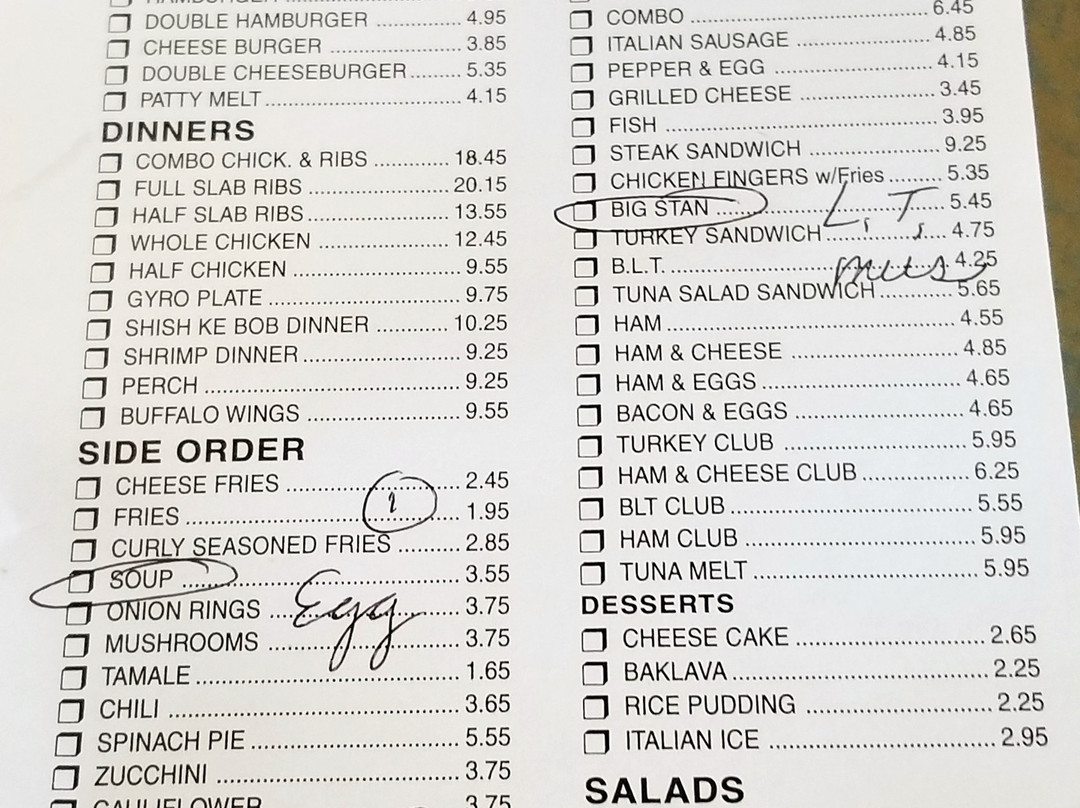 HAMBURGER
DOUBLE HAMBURGER ........ 4.95
CHEESE BURGER ........ 3.85
DOUBLE CHEESEBURGER ........ 5.35
PATTY MELT ........ 4.15
DINNERS
COMBO CHICK. & RIBS ........ 18.45
FULL SLAB RIBS ........ 20.15
HALF SLAB RIBS ........ 13.55
WHOLE CHICKEN ........ 12.45
HALF CHICKEN ........ 9.55
GYRO PLATE ........ 9.75
SHISH KE BOB DINNER ........ 10.25
SHRIMP DINNER ........ 9.25
PERCH ........ 9.25
BUFFALO WINGS ........ 9.55
SIDE ORDER
CHEESE FRIES ........ 2.45
FRIES ........ 1.95
1
CURLY SEASONED FRIES ........ 2.85
SOUP ........ 3.55
Egg
ONION RINGS ........ 3.75
MUSHROOMS ........ 3.75
TAMALE ........ 1.65
CHILI ........ 3.65
SPINACH PIE ........ 5.55
ZUCCHINI ........ 3.75
CAULIFLOWER ........ 3.75
COMBO ........ 6.45
ITALIAN SAUSAGE ........ 4.85
PEPPER & EGG ........ 4.15
GRILLED CHEESE ........ 3.45
FISH ........ 3.95
STEAK SANDWICH ........ 9.25
CHICKEN FINGERS w/Fries ........ 5.35
BIG STAN ........ 5.45
L, T,
TURKEY SANDWICH ........ 4.75
B.L.T. ........ 4.25
mus
TUNA SALAD SANDWICH ........ 5.65
HAM ........ 4.55
HAM & CHEESE ........ 4.85
HAM & EGGS ........ 4.65
BACON & EGGS ........ 4.65
TURKEY CLUB ........ 5.95
HAM & CHEESE CLUB ........ 6.25
BLT CLUB ........ 5.55
HAM CLUB ........ 5.95
TUNA MELT ........ 5.95
DESSERTS
CHEESE CAKE ........ 2.65
BAKLAVA ........ 2.25
RICE PUDDING ........ 2.25
ITALIAN ICE ........ 2.95
SALADS